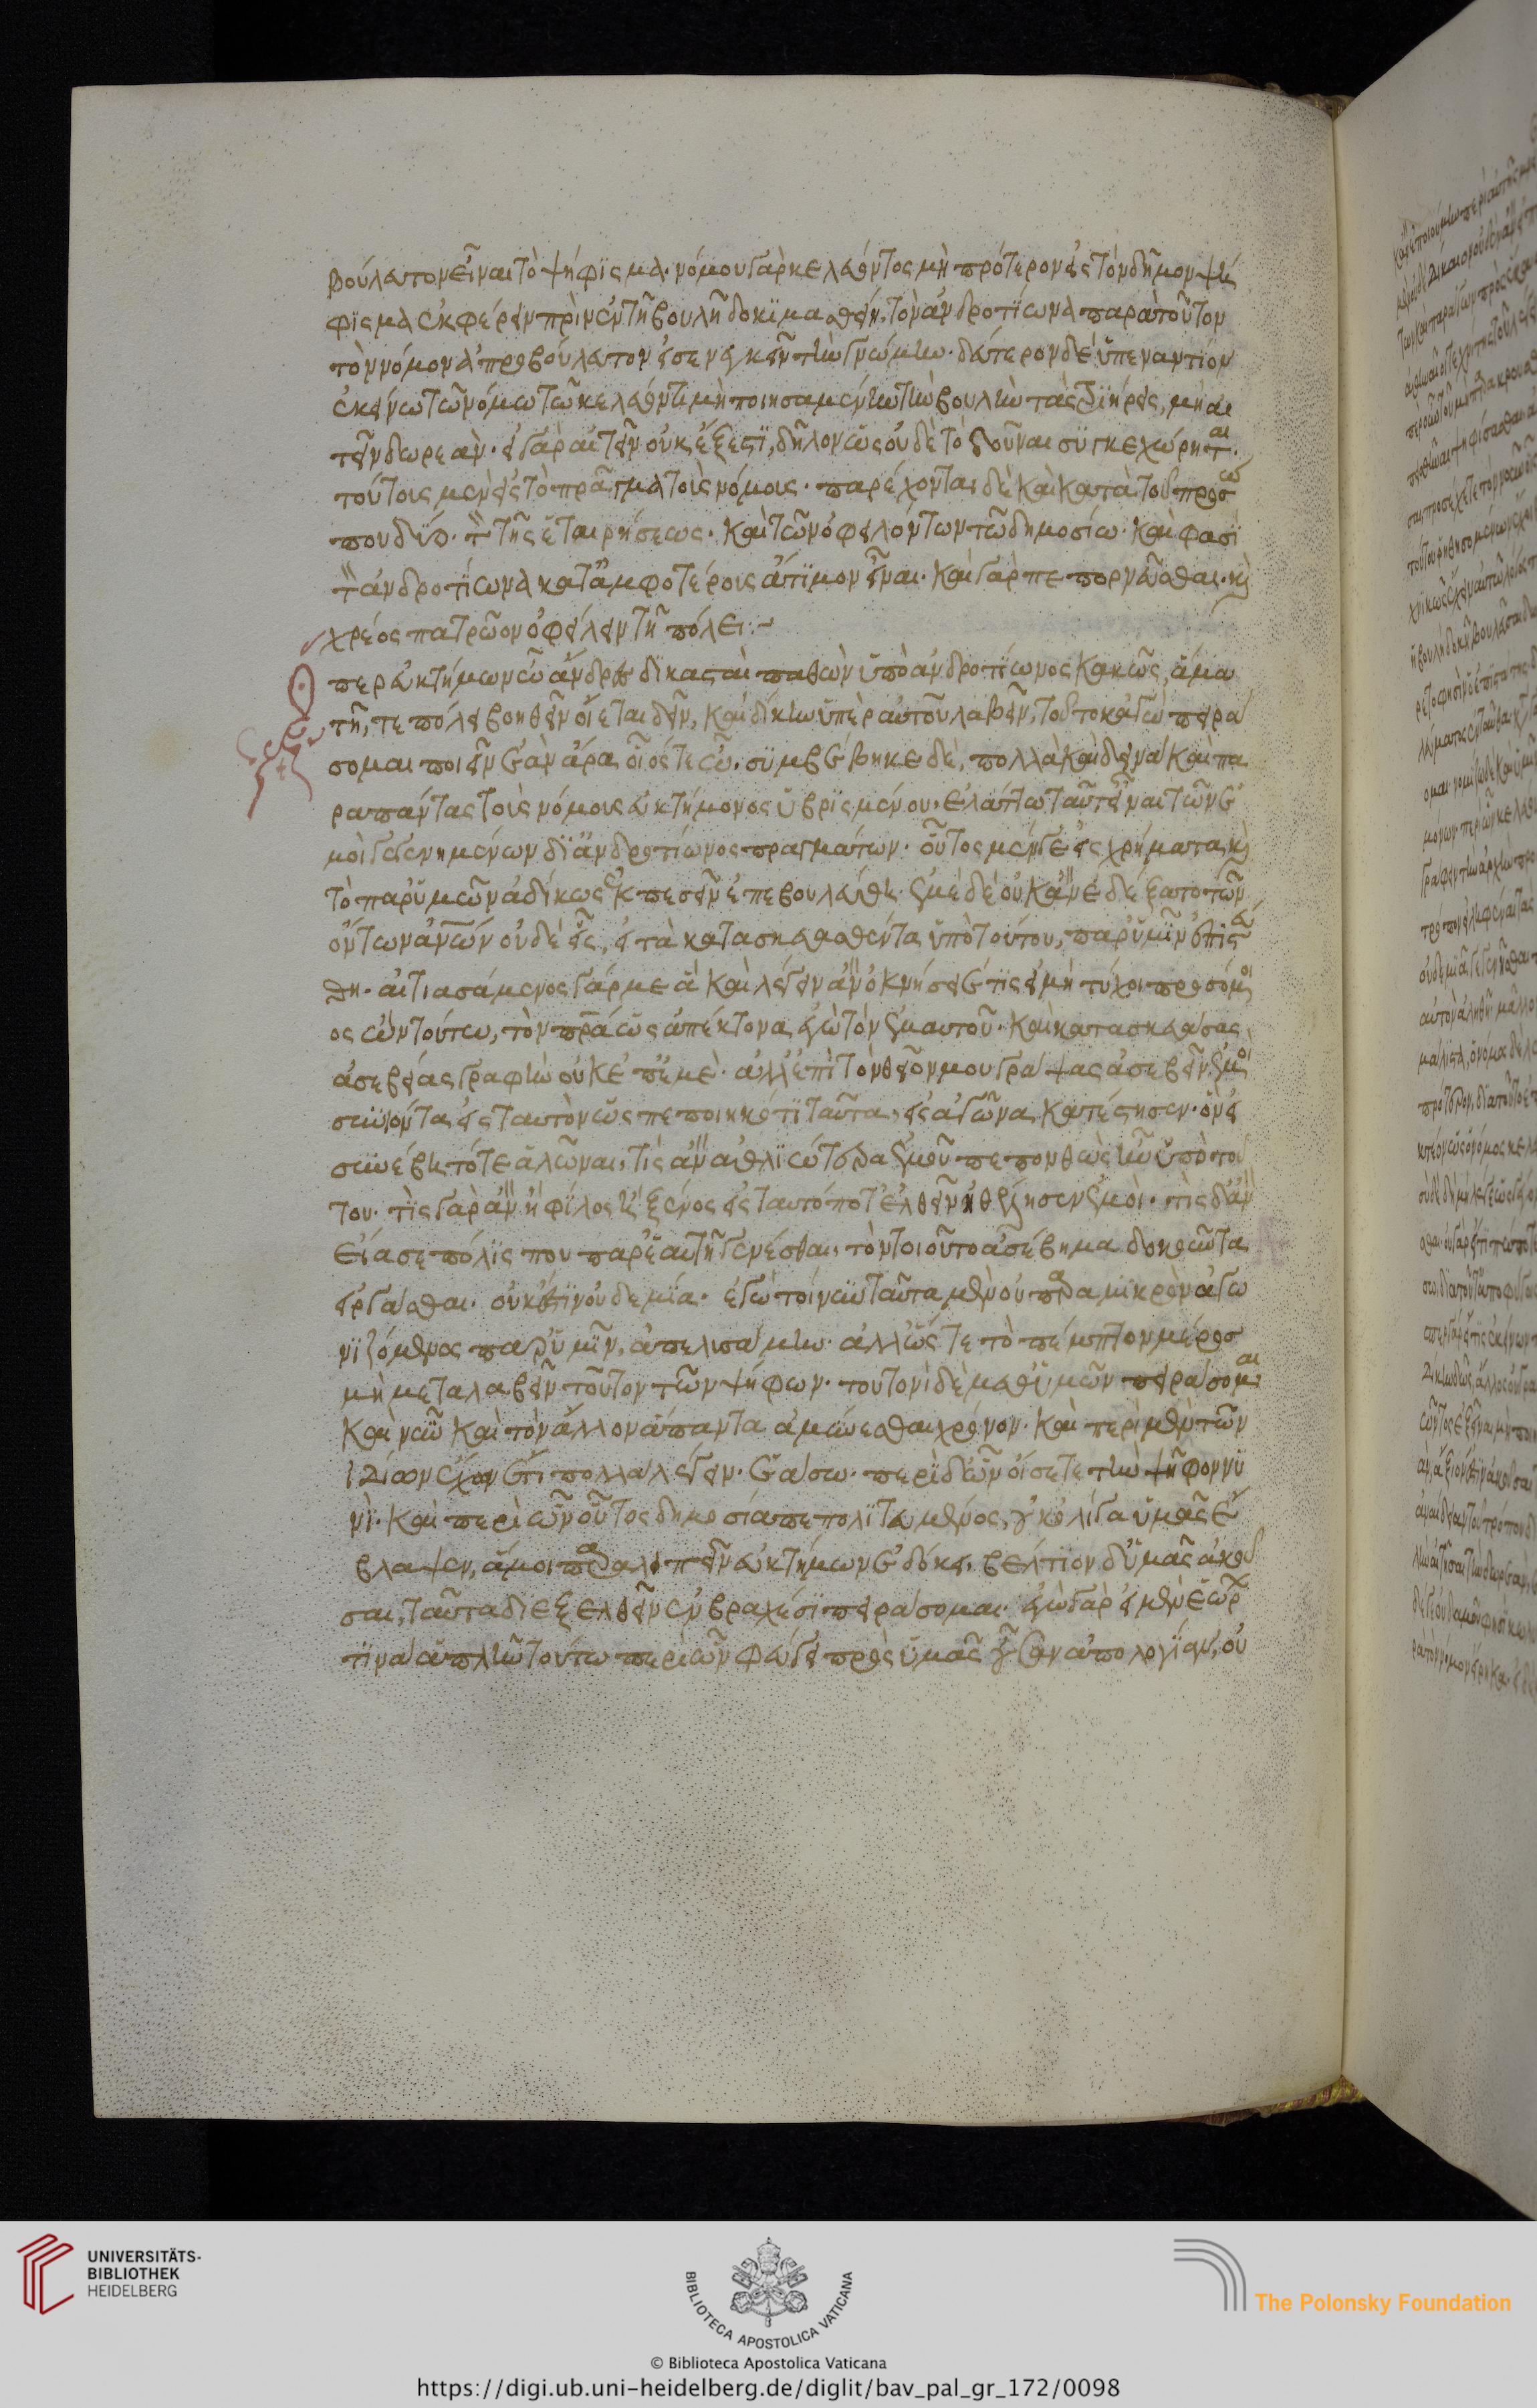 βούλευτον εἶναι τὸ ψήφισμα· νόμου γὰρ κελεύοντος μὴ πρότερον εἰς τὸν δῆμον ψή
φισμα ἐκφέρειν πρὶν ἐν τῇ βουλῇ δοκιμασθῆν, τὸν ἀνδροτίωνα παρὰ τοῦτον
τὸν νόμον ἀπροβούλευτον εἰσενεγκεῖν τὴν γνώμην· δεύτερον δὲ ὑπεναντίον
ἐκείνω τῶ νόμω τῶ κελεύοντι μὴ ποιησαμένην τὴν βουλὴν τὰς τριήρεις, μὴ αἰ
τεῖν δωρεάν· εἰ γὰρ αἰτεῖν οὐκ ἔξεστι, δῆλον ὡς οὐδὲ τὸ δοῦναι συγκεχώρηται·
τούτοις μὲν εἰς τὸ πρᾶγμα τοῖς νόμοις· παρέχονται δὲ καὶ κατὰ τοῦ προσώ
που δύο· τὸν τῆς ἑταιρήσεως· καὶ τῶν ὀφειλόντων τῶ δημοσίω· καὶ φασὶ
τὸν ἀνδροτίωνα κατ' ἀμφοτέροις ἄτιμον εἶναι· καὶ γὰρ πεπορνεῦσθαι· καὶ
χρέος πατρῶον ὀφείλειν τῆ πόλει:~
Ὅ
περ εὐκτήμων ὦ ἄνδρες δικασταὶ παθὼν ὑπὸ ἀνδροτίωνος κακῶς, ἅμα
τῆ, τε πόλει βοηθεῖν οἴεται δεῖν, καὶ δίκην ὑπὲρ αὐτοῦ λαβεῖν, τοῦτο κἀγὼ πειρά
σομαι ποιεῖν ἐὰν ἄρα οἷός τε ὦ. συμβέβηκε δὲ, πολλὰ καὶ δεινὰ καὶ πα
ρὰ πάντας τοὺς νόμους εὐκτήμονος ὑβρισμένου, ἐλάττω ταῦτ' εἶναι τῶν ἐ
μοὶ γεγενημένων δι' ἀνδροτίωνος πραγμάτων. οὗτος μέν γε εἰς χρήματα, καὶ
τὸ παρ' ὑμῶν ἀδίκως ἐκπεσεῖν ἐπεβουλεύθη· ἐμὲ δὲ οὐκ ἂν ἐδέξατο τῶν
ὄντων ἀνθρώπων οὐδὲ εἷς, εἰ τὰ κατασκευασθέντα ὑπὸ τούτου, παρ' ὑμῖν ἐπιστεύ
θη· αἰτιασάμενος γάρ με ἃ καὶ λέγειν ἂν ὀκνήσειέ τις εἰ μὴ τύχοι προσόμοι
ος ὢν τούτω, τὸν πατέρα ὡς ἀπέκτονα ἐγὼ τὸν ἐμαυτοῦ. καὶ κατασκευάσας
ἀσεβείας γραφὴν οὐκ ἐπ' ἐμὲ· ἀλλ' ἐπὶ τὸν θεῖόν μου γράψας ἀσεβεῖν ἐμοὶ
συνιόντα εἰς ταυτὸν ὡς πεποιηκότι ταῦτα, εἰς ἀγῶνα κατέστησεν. ὃν εἰ
συνέβη τότε ἁλῶναι, τίς ἂν ἀθλιώτερα ἐμοῦ πεπονθὼς ἦν ὑπὸ τού
του. τίς γὰρ ἂν ἢ φίλος ἢ ξένος εἰς ταυτό ποτ' ἐλθεῖν ἠθέλησεν ἐμοί· τίς δ' ἂν
εἴασε πόλις που παρ' ἑαυτῆ γενέσθαι, τὸν τοιοῦτο ἀσέβημα δοκοῦντα
εἰργάσθαι. οὐκ ἔστιν οὐδεμία. ἐγὼ τοίνυν ταῦτα μὲν οὐ παρὰ μικρὸν ἀγω
νιζόμενος παρ' ὑμῖν, ἀπελυσάμην. ἀλλ' ὥστε τὸ πέμπτον μέρος
μὴ μεταλαβεῖν τοῦτον τῶν ψήφων. τουτονὶ δὲ μεθ' ὑμῶν πειράσομαι
καὶ νῦν καὶ τὸν ἄλλον ἅπαντα ἀμύνεσθαι χρόνον. καὶ περὶ μὲν τῶν
ἰδίων ἔχων ἔτι πολλὰ λέγειν. ἐάσω. περὶ δ' ὧν οἴσετε τὴν ψῆφον νυ
νὶ. καὶ περὶ ὧν οὗτος δημοσία πεπολιτευμένος, οὐκ ὀλίγα ὑμᾶς ἔ
βλαψεν, ἅ μοι παραλιπεῖν εὐκτήμων ἐδόκει. βέλτιον δ' ὑμᾶς ἀκοῦ
σαι, ταῦτα διεξελθεῖν ἐν βραχέσι πειράσομαι. ἐγὼ γὰρ εἰ μὲν ἑώρων
τινα ἁπλῆν τούτω περὶ ὧν φεύγει πρὸς ὑμᾶς οὖσαν ἀπολογίαν, οὐ
UNIVERSITÄTS-
BIBLIOTHEK
HEIDELBERG
BIBLIOTECA APOSTOLICA VATICANA
The Polonsky Foundation
© Biblioteca Apostolica Vaticana
https://digi.ub.uni-heidelberg.de/diglit/bav_pal_gr_172/0098